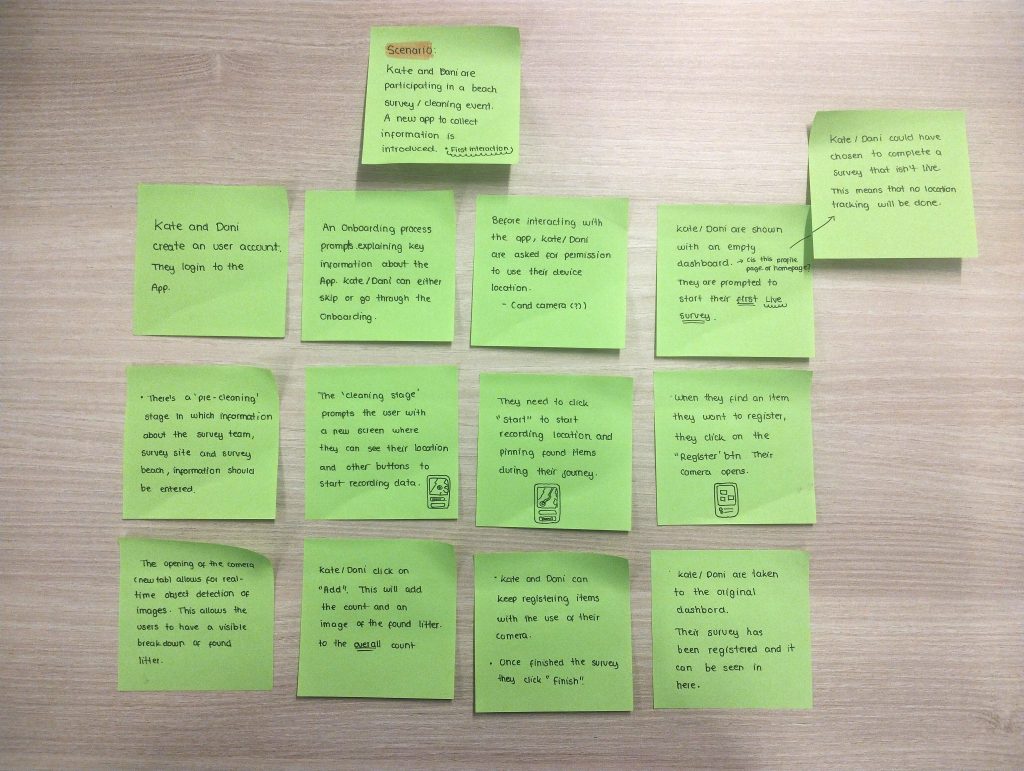 Scenario:
Kate and Dani are
participating in a beach
survey / cleaning event.
A new app to collect
information is
introduced. * First interaction
Kate and Dani
create an user account.
They login to the
App.
An Onboarding process
prompts explaining key
information about the
App. Kate/Dani can either
skip or go through the
Onboarding.
Before interacting with
the app, Kate/Dani
are asked for permission
to use their device
location.
- (and camera (?))
Kate/Dani are shown
with an empty
dashboard. → (is this profile
page or homepage?
They are prompted to
start their first Live
survey.
Kate/Dani could have
chosen to complete a
survey that isn't live.
This means that no location
tracking will be done.
• There's a 'pre-cleaning'
stage in which information
about the survey team,
survey site and survey
beach, information should
be entered.
The 'cleaning stage'
prompts the user with
a new screen where
they can see their location
and other buttons to
start recording data.
They need to click
"Start" to start
recording location and
pinning found items
during their journey.
When they find an item
they want to register,
they click on the
"Register" btn. Their
camera opens.
The opening of the camera
(new tab) allows for real-
time object detection of
images. This allows the
users to have a visible
breakdown of found
litter.
Kate/Dani click on
"Add". This will add
the count and an
image of the found litter.
to the overall count
• Kate and Dani can
keep registering items
with the use of their
camera.
• Once finished the survey
they click "Finish".
Kate/Dani are taken
to the original
dashbord.
Their survey has
been registered and it
can be seen in
here.